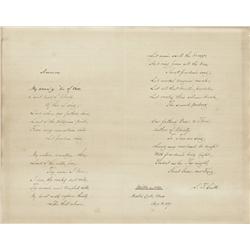 America
My country, 'tis of thee,
Sweet land of liberty,
Of thee I sing;
Land where my fathers died,
Land of the Pilgrims' pride,
From every mountain side
Let freedom ring.
My native country, thee,
Land of the noble free,
Thy name I love;
I love thy rocks and rills,
Thy woods and templed hills,
My heart with rapture thrills
Like that above.
Let music swell the breeze,
And ring from all the trees
Sweet freedom's song;
Let mortal tongues awake,
Let all that breathe partake,
Let rocks their silence break,
The sound prolong.
Our fathers' God, to Thee,
Author of liberty,
To Thee we sing;
Long may our land be bright
With freedom's holy light,
Protect us by thy might,
Great God, our King.
S. F. Smith